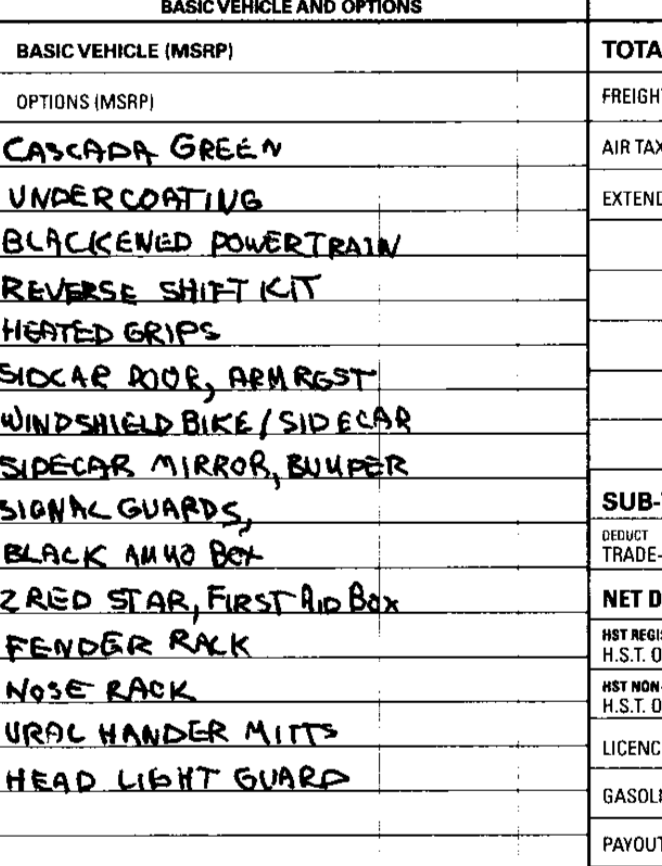 BASIC VEHICLE AND OPTIONS
BASIC VEHICLE (MSRP)
OPTIONS (MSRP)
CASCADA GREEN
UNDERCOATING
BLACKENED POWERTRAIN
REVERSE SHIFT KIT
HEATED GRIPS
SIDCAR DOOR, ARMREST
WINDSHIELD BIKE / SIDECAR
SIDECAR MIRROR, BUMPER
SIGNAL GUARDS,
BLACK AMMO BOX
2 RED STAR, FIRST AID BOX
FENDER RACK
NOSE RACK
URAL HANDER MITTS
HEAD LIGHT GUARD
TOTA
FREIGHT
AIR TAX
EXTEND
SUB-
DEDUCT
TRADE-
NET D
HST REGIS
H.S.T. O
HST NON-
H.S.T. O
LICENC
GASOLI
PAYOUT